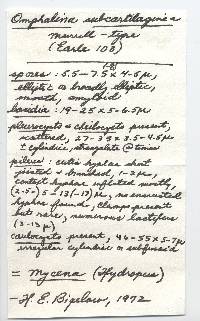 Omphalina subcartilaginea
Murrill - type
(Earle 108)
(-8)
spores: 5.5-7.5 x 4-5 µ,
elliptic or broadly elliptic,
smooth, amyloid
basidia: 19-25 x 5-6.5µ
pleurocysts & cheilocysts present,
scattered, 27-35 x 3.5-4.5µ
± cylindric, strangulate
pileus: cutis hyphae short
jointed & branched, 1-2µ,
context hyphae inflated mostly,
(2.5-) 5-13(-17)µ, no cemented
hyphae found, clamps present
but rare, numerous lactifers
(3-13µ)
caulocysts present, 46-55 x 5-7µ
irregular cylindric or subfusoid
= Mycena (Hydropus)
- H. E. Bigelow, 1972